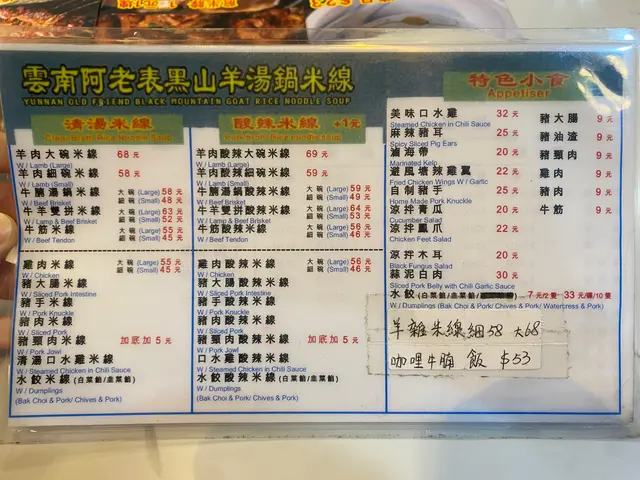 雲南阿老表黑山羊湯鍋米線
YUNNAN OLD FRIEND BLACK MOUNTAIN GOAT RICE NOODLE SOUP
清湯米線
羊肉大碗米線 68 元
W/ Lamb (Large)
羊肉細碗米線 58 元
W/ Lamb (Small)
牛腩湯鍋米線 大碗 (Large) 58 元
W/ Beef Brisket 細碗 (Small) 48 元
牛羊雙拼米線 大碗 (Large) 63 元
W/ Lamp & Beef Brisket 細碗 (Small) 52 元
牛筋米線 大碗 (Large) 55 元
W/ Beef Tendon 細碗 (Small) 45 元
雞肉米線 大碗 (Large) 55 元
W/ Chicken 細碗 (Small) 45 元
豬大腸米線
W/ Sliced Pork Intestine
豬手米線
W/ Pork Knuckle
豬肉米線
W/ Sliced Pork
豬頸肉米線 加底加 5 元
W/ Pork Jowl
清湯口水雞米線
W/ Steamed Chicken in Chili Sauce
水餃米線 (白菜餡/韭菜餡)
W / Dumplings
(Bak Choi & Pork/ Chives & Pork)
酸辣米線 +1元
羊肉酸辣大碗米線 69 元
W/ Lamb (Large)
羊肉酸辣細碗米線 59 元
W/ Lamb (Small)
牛腩湯鍋酸辣米線 大碗 (Large) 59 元
W/ Beef Brisket 細碗 (Small) 49 元
牛羊雙拼酸辣米線 大碗 (Large) 64 元
W/ Lamp & Beef Brisket 細碗 (Small) 53 元
牛筋酸辣米線 大碗 (Large) 56 元
W/ Beef Tendon 細碗 (Small) 46 元
雞肉酸辣米線 大碗 (Large) 56 元
W/ Chicken 細碗 (Small) 46 元
豬大腸酸辣米線
W/ Sliced Pork Intestine
豬手酸辣米線
W/ Pork Knuckle
豬肉酸辣米線
W/ Sliced Pork
豬頸肉酸辣米線 加底加 5 元
W/ Pork Jowl
口水雞酸辣米線
W/ Steamed Chicken in Chili Sauce
水餃酸辣米線 (白菜餡/韭菜餡)
W / Dumplings
(Bak Choi & Pork/ Chives & Pork)
特色小食
Appetiser
美味口水雞 32 元
Steamed Chicken in Chili Sauce
麻辣豬耳 25 元
Spicy Sliced Pig Ears
滷海帶 20 元
Marinated Kelp
避風塘辣雞翼 22 元
Fried Chicken Wings W / Garlic
自制豬手 25 元
Home Made Pork Knuckle
涼拌青瓜 20 元
Cucumber Salad
涼拌鳳爪 22 元
Chicken Feet Salad
涼拌木耳 20 元
Black Fungus Salad
蒜泥白肉 30 元
Sliced Pork Belly with Chili Garlic Sauce
水餃 (白菜餡/韭菜餡/ 7 元/2 隻 33 元/碟/10隻
W/ Dumplings (Bak Choi & Pork/ Chives & Pork/ Watercress & Pork)
豬大腸 9 元
豬油渣 9 元
豬頸肉 9 元
雞肉 9 元
豬肉 9 元
牛筋 9 元
羊雜米線細58 大68
咖哩牛腩 飯 $53